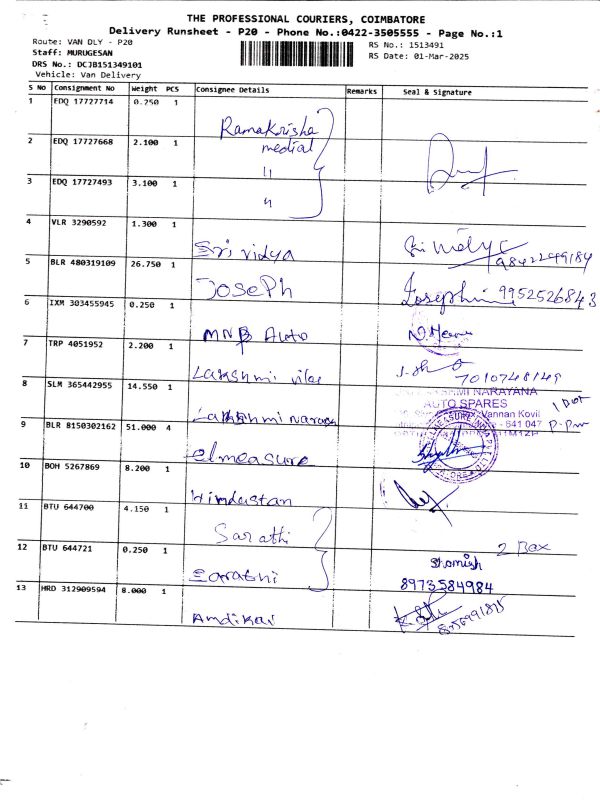 THE PROFESSIONAL COURIERS, COIMBATORE
Delivery Runsheet - P20 - Phone No.:0422-3505555 - Page No.:1
Route: VAN DLY - P20
RS No.: 1513491
Staff: MURUGESAN
RS Date: 01-Mar-2025
DRS No.: DCJB151349101
Vehicle: Van Delivery
S No Consignment No Weight PCS Consignee Details Remarks Seal & Signature
1 EDQ 17727714 0.250 1 Ramakrisha
2 EDQ 17727668 2.100 1 medial
"
3 EDQ 17727493 3.100 1 "
4 VLR 3290592 1.300 1 Sri vidya
9842249184
5 BLR 480319109 26.750 1 JosePh Josephin 9952526843
6 IXM 303455945 0.250 1 MNB Auto N.Meena
7 TRP 4051952 2.200 1 Lakshmi vilas
7010748149
8 SLM 365442955 14.550 1 Lakshmi narayan
NARAYANA
AUTO SPARES
Vannan Kovil
641 047
9 BLR 8150302162 51.000 4 elmeasure
10 BOH 5267869 8.200 1 Hindustan
11 BTU 644700 4.150 1 Sarathi
2 Box
12 BTU 644721 0.250 1 Sarathi
Shamish
8973584984
13 HRD 312909594 8.000 1 Amdikai